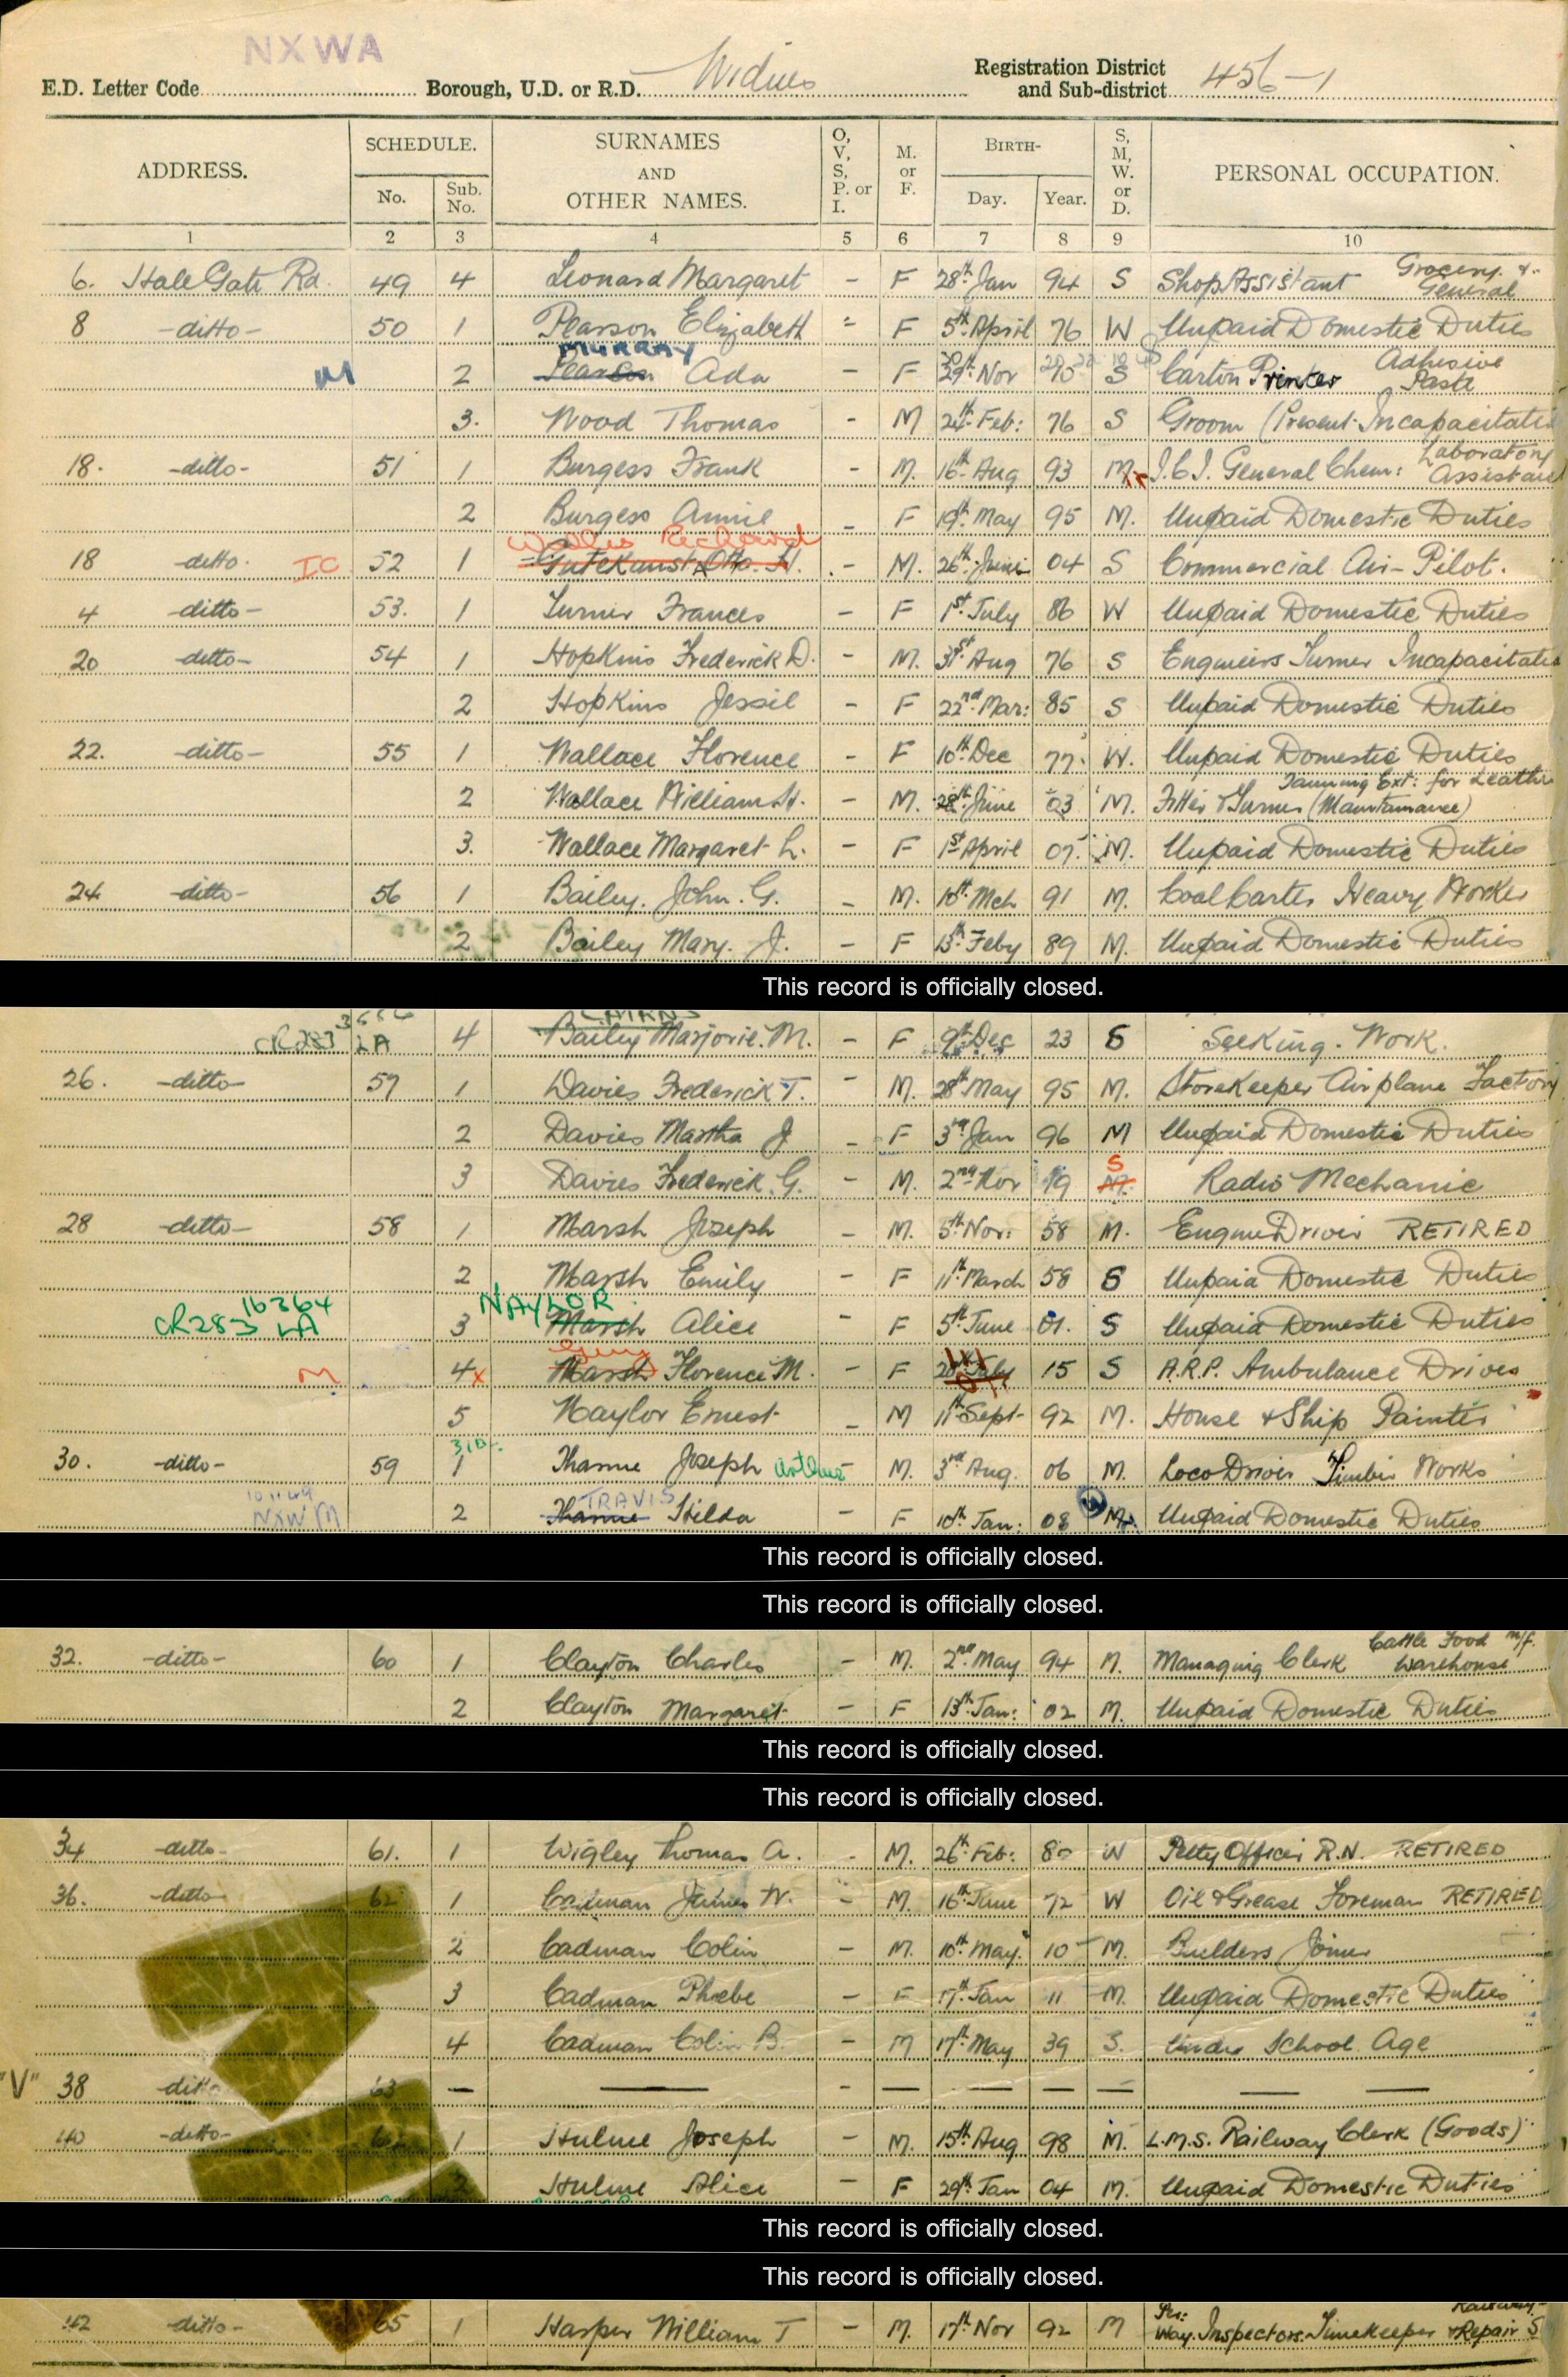 NXWA
E.D. Letter Code Borough, U.D. or R.D. Widnes Registration District and Sub-district 456-1
ADDRESS. SCHEDULE. No. Sub. No. SURNAMES AND OTHER NAMES. O, V, S, P. or I. M. or F. BIRTH- Day. Year. S, M, W. or D. PERSONAL OCCUPATION.
1 2 3 4 5 6 7 8 9 10
6. Hale Gate Rd. 49 4 Leonard Margaret - F 28th Jan 94 S Shop Assistant Grocery & General
8 -ditto- 50 1 Pearson Elizabeth - F 5th April 76 W Unpaid Domestic Duties
MURRAY
M 2 Pearson Ada - F 29th Nov 10 S Carton Printer Adhesive Paste
3. Wood Thomas - M 24th Feb: 76 S Groom (Present Incapacitated
18. -ditto- 51 1 Burgess Frank - M. 16th Aug 93 M. I.C.I. General Chem: Laboratory Assistant
2 Burgess Annie - F 19th May 95 M. Unpaid Domestic Duties
Richard
18 ditto. IC 52 1 Gutekunst Otto. H. - M. 26th June 04 S Commercial Air-Pilot.
4 ditto- 53. 1 Turner Frances - F 1st July 86 W Unpaid Domestic Duties
20 ditto- 54 1 Hopkins Frederick D. - M. 31st Aug 76 S Engineers Turner Incapacitated
2 Hopkins Jessie - F 22nd Mar: 85 S Unpaid Domestic Duties
22. -ditto- 55 1 Wallace Florence - F 10th Dec 77. W. Unpaid Domestic Duties
2 Wallace William H. - M. 28th June 03 M. Fitter & Turner (Maintainance) Tanning Ext: for Leather
3. Wallace Margaret L. - F 1st April 07. M. Unpaid Domestic Duties
24 -ditto- 56 1 Bailey. John. G. - M. 10th Mch 91 M. Coal Carter Heavy Worker
2 Bailey Mary. J. - F 13th Feby 89 M. Unpaid Domestic Duties
This record is officially closed.
CAIRNS
CR283 LA 4 Bailey Marjorie. M. - F 9th Dec 23 S Seeking. Work.
26. -ditto- 57 1 Davies Frederick T. - M. 28th May 95 M. Storekeeper Airplane Factory
2 Davies Martha J - F 3rd Jan 96 M Unpaid Domestic Duties
3 Davies Frederick. G. - M. 2nd Nov 19 M. S Radio Mechanic
28 -ditto- 58 1 Marsh Joseph - M. 5th Nov: 58 M. Engine Driver RETIRED
2 Marsh Emily - F 11th March 58 S Unpaid Domestic Duties
16364 NAYLOR
CR283 LA 3 Marsh Alice - F 5th June 01. S Unpaid Domestic Duties
M 4 x Marsh Florence M. - F 28th July 15 S A.R.P. Ambulance Driver
5 Naylor Ernest - M 11th Sept 92 M. House & Ship Painter
30. -ditto- 59 1 Joseph Arthur M. 3rd Aug. 06 M. Loco Driver Timber Works
TRAVIS
NXW M 2 Hilda - F 10th Jan: 08 M. Unpaid Domestic Duties
This record is officially closed.
This record is officially closed.
32. -ditto- 60 1 Clayton Charles - M. 2nd May 94 M. Managing Clerk Cattle Food m/f. Warehouse
2 Clayton Margaret - F 13th Jan: 02 M. Unpaid Domestic Duties
This record is officially closed.
This record is officially closed.
34 -ditto- 61. 1 Wigley Thomas A. - M. 26th Feb: 80 W Petty Officer R.N. RETIRED
36. -ditto- 62 1 Cadman James W. - M. 16th June 72 W Oil & Grease Foreman RETIRED
2 Cadman Colin - M. 10th May. 10 M. Builders Joiner
3 Cadman Phebe - F 17th Jan 11 M. Unpaid Domestic Duties
4 Cadman Colin B. - M 17th May 39 S. Under School Age
"V" 38 ditto 63 — — - — — — — — —
40 -ditto- 64 1 Hulme Joseph - M. 15th Aug 98 M. L.M.S. Railway Clerk (Goods)
2 Hulme Alice - F 29th Jan 04 M. Unpaid Domestic Duties
This record is officially closed.
This record is officially closed.
42 ditto- 65 1 Harper William T - M. 17th Nov 92 M Way. Inspectors. Timekeeper & Repair